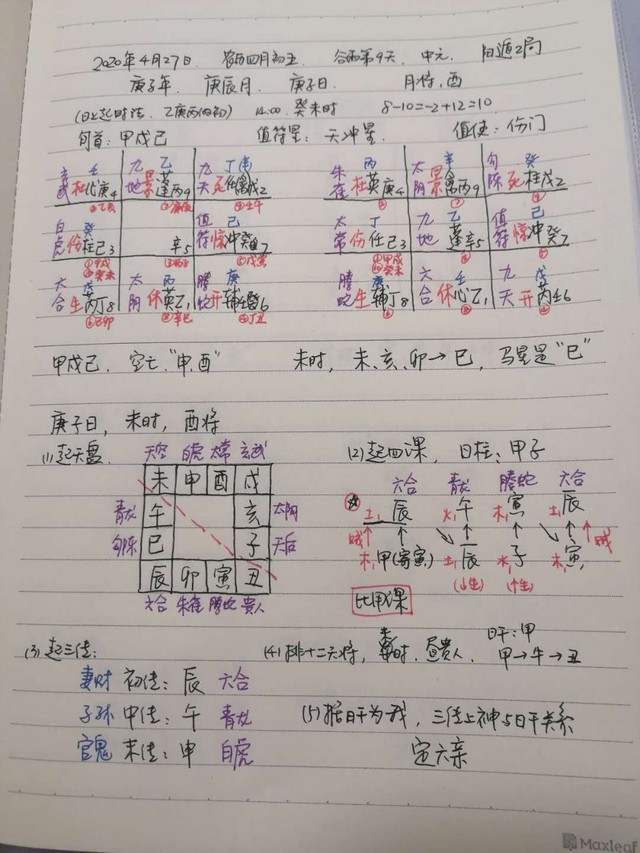 2020年4月27日 农历四月初五 谷雨第9天 中元 阳遁2局
庚子年, 庚辰月, 庚子日, 月将,酉
(日上起时法, 乙庚丙作初) 14:00, 癸未时 8-10=-2+12=10
旬首:甲戌己 值符星:天冲星 值使:伤门
玄武 壬 杜心庚4 九地 乙 景蓬丙9 九天 丁 死任戊2
朱雀 丙 杜英庚4 太阴 辛 景禽丙9 勾陈 癸 死柱戊2
白虎 癸 伤柱己3 辛5 值符 己 惊冲癸7
太常 丁 伤任己3 九地 乙 蓬辛5 值符 己 惊冲癸7
太合 戊 生芮丁8 太阴 丙 休英乙1 腾蛇 庚 开辅壬6
腾蛇 庚 生辅丁8 六合 壬 休心乙1 九天 戊 开芮壬6
甲戌己, 空亡:"申,酉" 未时, 未、亥、卯→巳, 马星是"巳"
庚子日, 未时, 酉将
(1)起天盘 (2)起四课, 日柱:甲子
天空 白虎 太常 玄武
未 申 酉 戌
青龙 午 亥 太阴
勾陈 巳 子 天后
辰 卯 寅 丑
六合 朱雀 腾蛇 贵人
六合 青龙 腾蛇 六合
土 辰 火 午 木 寅 辰
贼 贼
木 甲(寄寅) 土 辰 水 子 木 寅
比用课
(3)起三传: (4)排十二天将, 未时, 昼贵人, 日干:甲
甲→午→丑
妻财 初传:辰 六合
子孙 中传:午 青龙
官鬼 末传:申 白虎
(5)据日干为我, 三传上神与日干关系
定六亲
Maxleaf